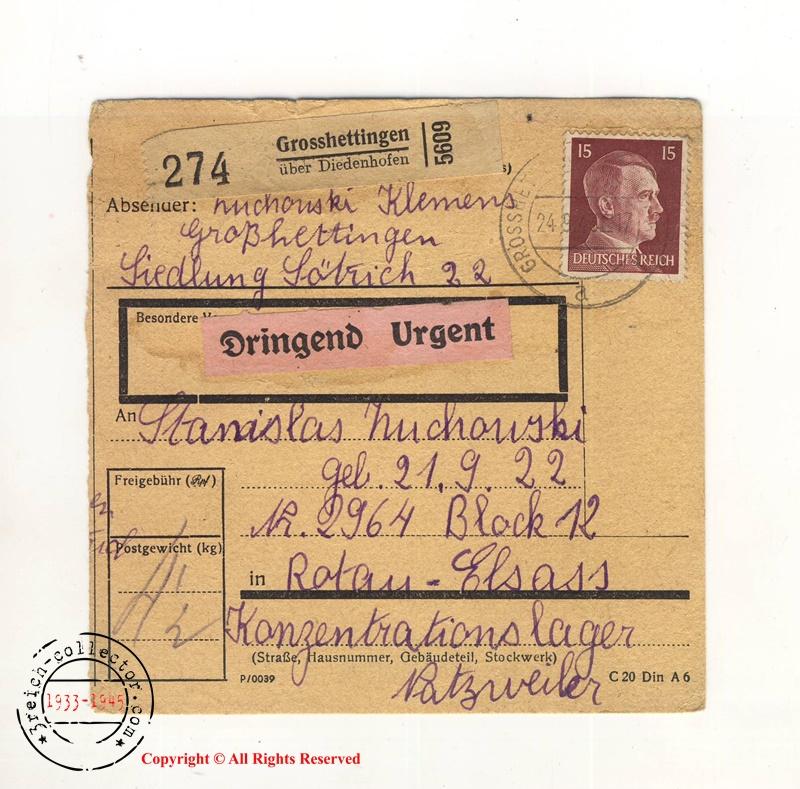 274
Grosshettingen
über Diedenhofen
5609
s)
15 15
DEUTSCHES REICH
GROSSHE
24.8
17
a
Absender: Zuchowski Klemens
Großhettingen
Siedlung Sötrich 22
Besondere
Dringend Urgent
An Stanislas Zuchowski
geb. 21.9.22
Nr. 2964 Block 12
Freigebühr (Rpf)
Postgewicht (kg)
in Rotau-Elsass
Konzentrationslager
(Straße, Hausnummer, Gebäudeteil, Stockwerk)
Natzweiler
P/0039
C 20 Din A 6
3reich-collector.com
1933-1945
Copyright © All Rights Reserved